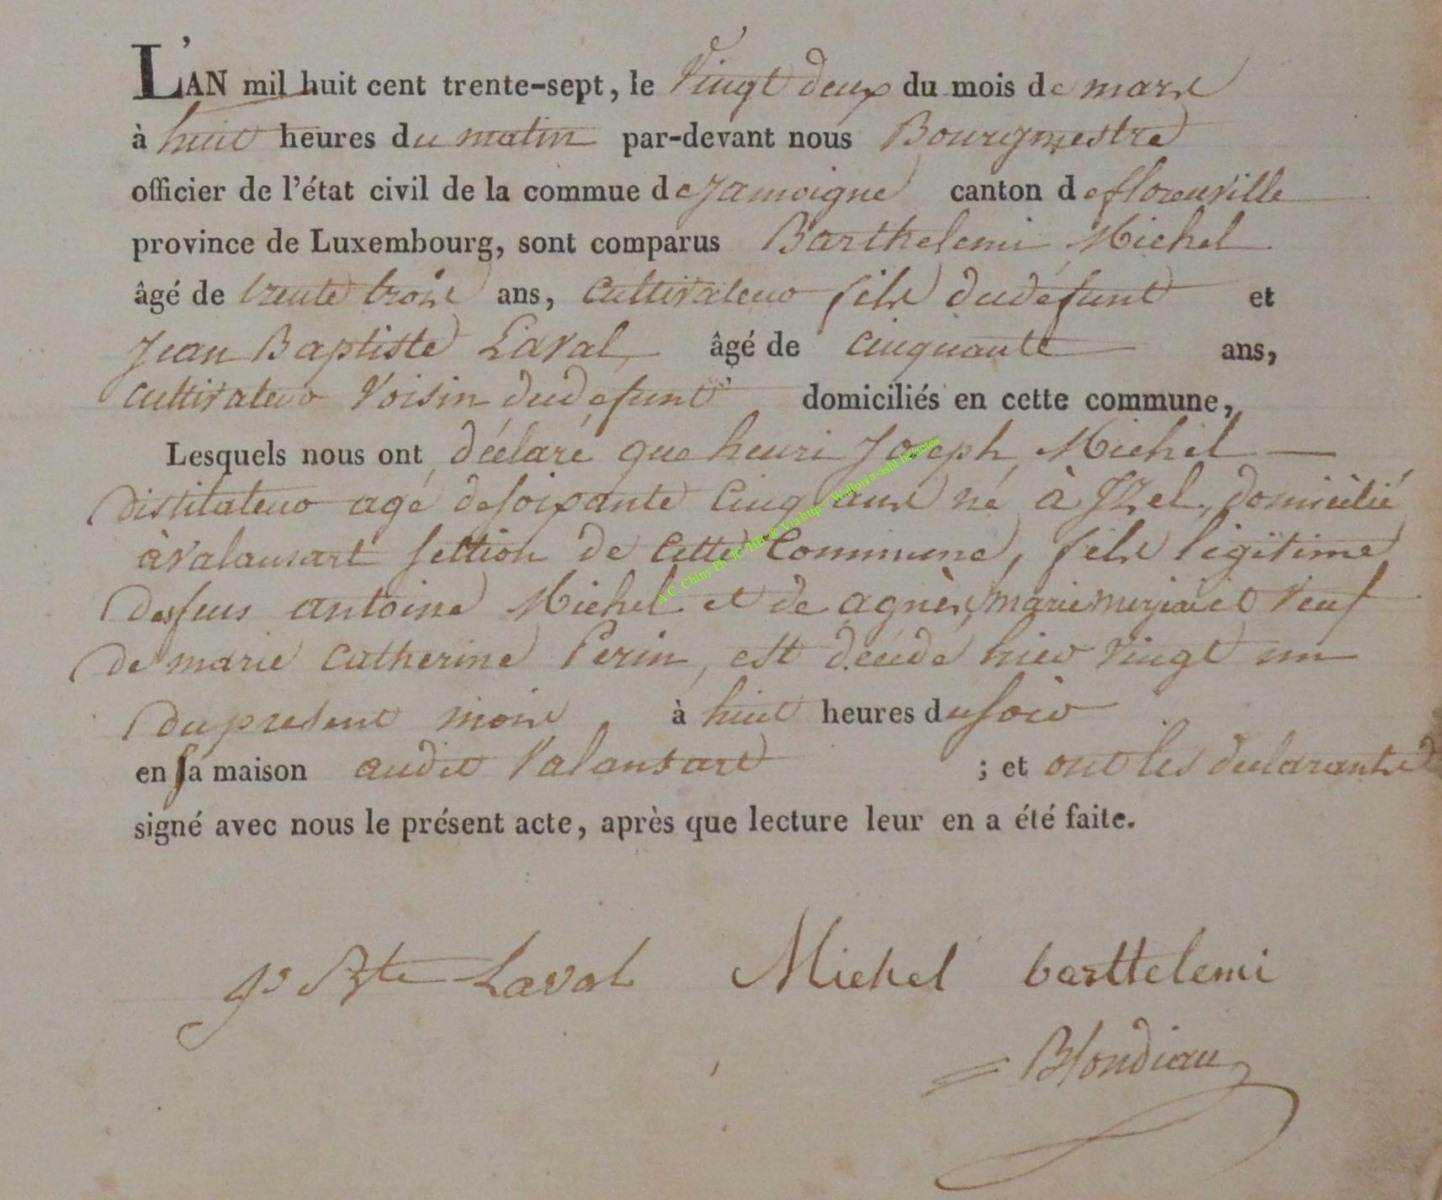 L'AN mil huit cent trente-sept, le Vingt deux du mois de mars
à huit heures du matin par-devant nous Bourgmestre
officier de l'état civil de la commue de Jamoigne canton de florenville
province de Luxembourg, sont comparus Barthelemi Michel
âgé de trente trois ans, cultivateur fils dudefunt et
Jean Baptiste Laval âgé de cinquante ans,
cultivateur Voisin dudefunt domiciliés en cette commune,
Lesquels nous ont déclaré que henri Joseph Michel —
Distilateur agé de soixante Cinq ans né à Izel, domicilié
à valansart section de cette Commune, fils légitime
desfeus antoine Michel et de agnès, marie et veuf
de marie catherine Perin, est décédé hier vingt un
du present mois à huit heures du soir
en sa maison audit Valansart ; et ont les declarants
signé avec nous le présent acte, après que lecture leur en a été faite.
Js Bte Laval Michel barttelemi
Blondiau